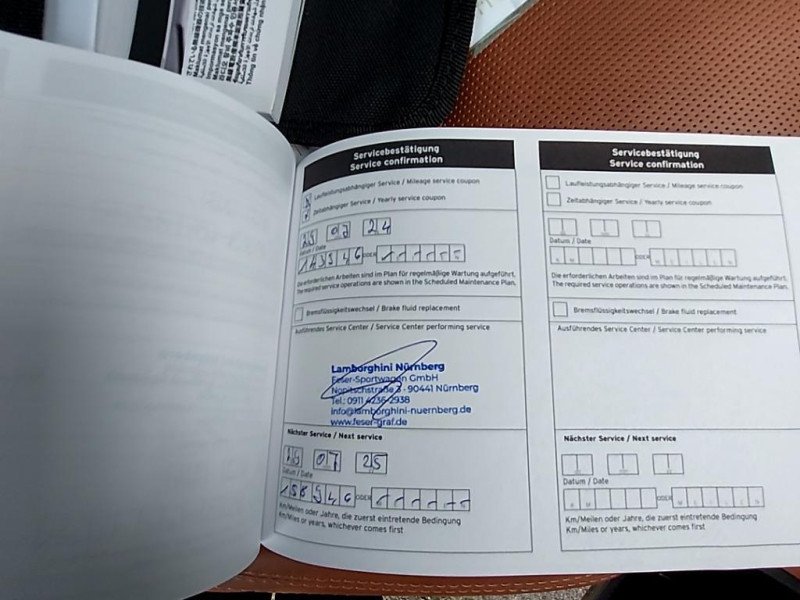 Servicebestätigung
Service confirmation
Laufleistungsabhängiger Service / Mileage service coupon
Zeitabhängiger Service / Yearly service coupon
07 24
Datum / Date
143546 ODER
Die erforderlichen Arbeiten sind im Plan für regelmäßige Wartung aufgeführt.
The required service operations are shown in the Scheduled Maintenance Plan.
Bremsflüssigkeitswechsel / Brake fluid replacement
Ausführendes Service Center / Service Center performing service
Lamborghini Nürnberg
Feser-Sportwagen GmbH
Nopitschstraße 3 - 90441 Nürnberg
Tel.: 0911 4236 2938
info@lamborghini-nuernberg.de
www.feser-graf.de
Nächster Service / Next service
07 25
Datum / Date
158546 ODER
Km/Meilen oder Jahre, die zuerst eintretende Bedingung
Km/Miles or years, whichever comes first
Servicebestätigung
Service confirmation
Laufleistungsabhängiger Service / Mileage service coupon
Zeitabhängiger Service / Yearly service coupon
Datum / Date
ODER
Die erforderlichen Arbeiten sind im Plan für regelmäßige Wartung aufgeführt.
The required service operations are shown in the Scheduled Maintenance Plan.
Bremsflüssigkeitswechsel / Brake fluid replacement
Ausführendes Service Center / Service Center performing service
Nächster Service / Next service
Datum / Date
ODER
Km/Meilen oder Jahre, die zuerst eintretende Bedingung
Km/Miles or years, whichever comes first